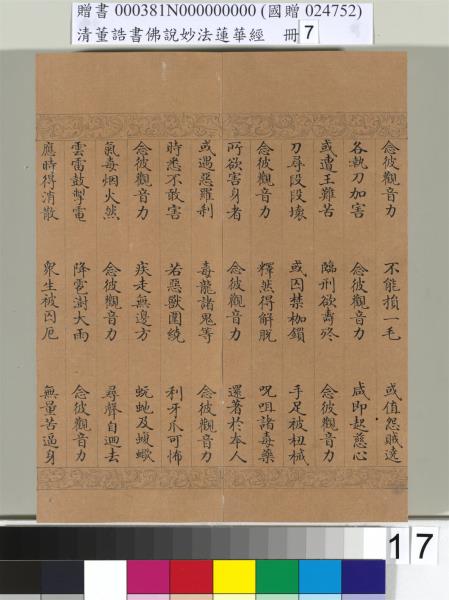 贈書 000381N000000000 (國贈 024752)
清董誥書佛說妙法蓮華經 冊 7
念彼觀音力 不能損一毛 或值怨賊遶
各執刀加害 念彼觀音力 咸即起慈心
或遭王難苦 臨刑欲壽終 念彼觀音力
刀尋段段壞 或囚禁枷鎖 手足被杻械
念彼觀音力 釋然得解脫 呪咀諸毒藥
所欲害身者 念彼觀音力 還著於本人
或遇惡羅剎 毒龍諸鬼等 念彼觀音力
時悉不敢害 若惡獸圍繞 利牙爪可怖
念彼觀音力 疾走無邊方 蚖虵及蝮蠍
氣毒烟火然 念彼觀音力 尋聲自迴去
雲雷鼓掣電 降雹澍大雨 念彼觀音力
應時得消散 眾生被困厄 無量苦逼身
17